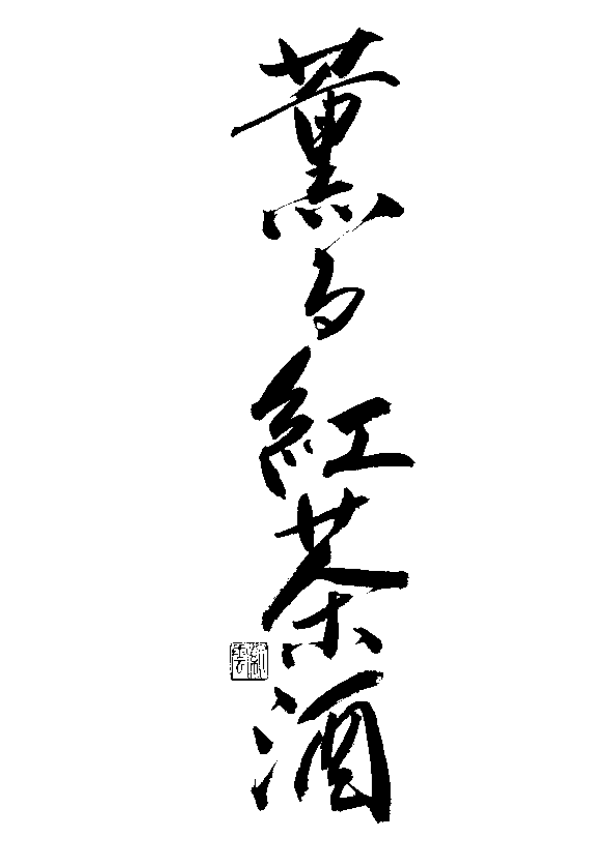 薫る紅茶酒